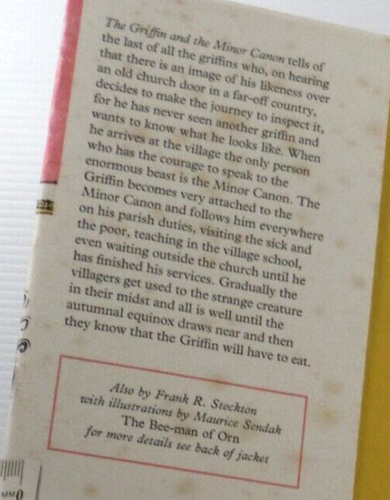 The Griffin and the Minor Canon tells of
the last of all the griffins who, on hearing
that there is an image of his likeness over
an old church door in a far-off country,
decides to make the journey to inspect it,
for he has never seen another griffin and
wants to know what he looks like. When
he arrives at the village the only person
who has the courage to speak to the
enormous beast is the Minor Canon. The
Griffin becomes very attached to the
Minor Canon and follows him everywhere
on his parish duties, visiting the sick and
the poor, teaching in the village school,
even waiting outside the church until he
has finished his services. Gradually the
villagers get used to the strange creature
in their midst and all is well until the
autumnal equinox draws near and then
they know that the Griffin will have to eat.
Also by Frank R. Stockton
with illustrations by Maurice Sendak
The Bee-man of Orn
for more details see back of jacket